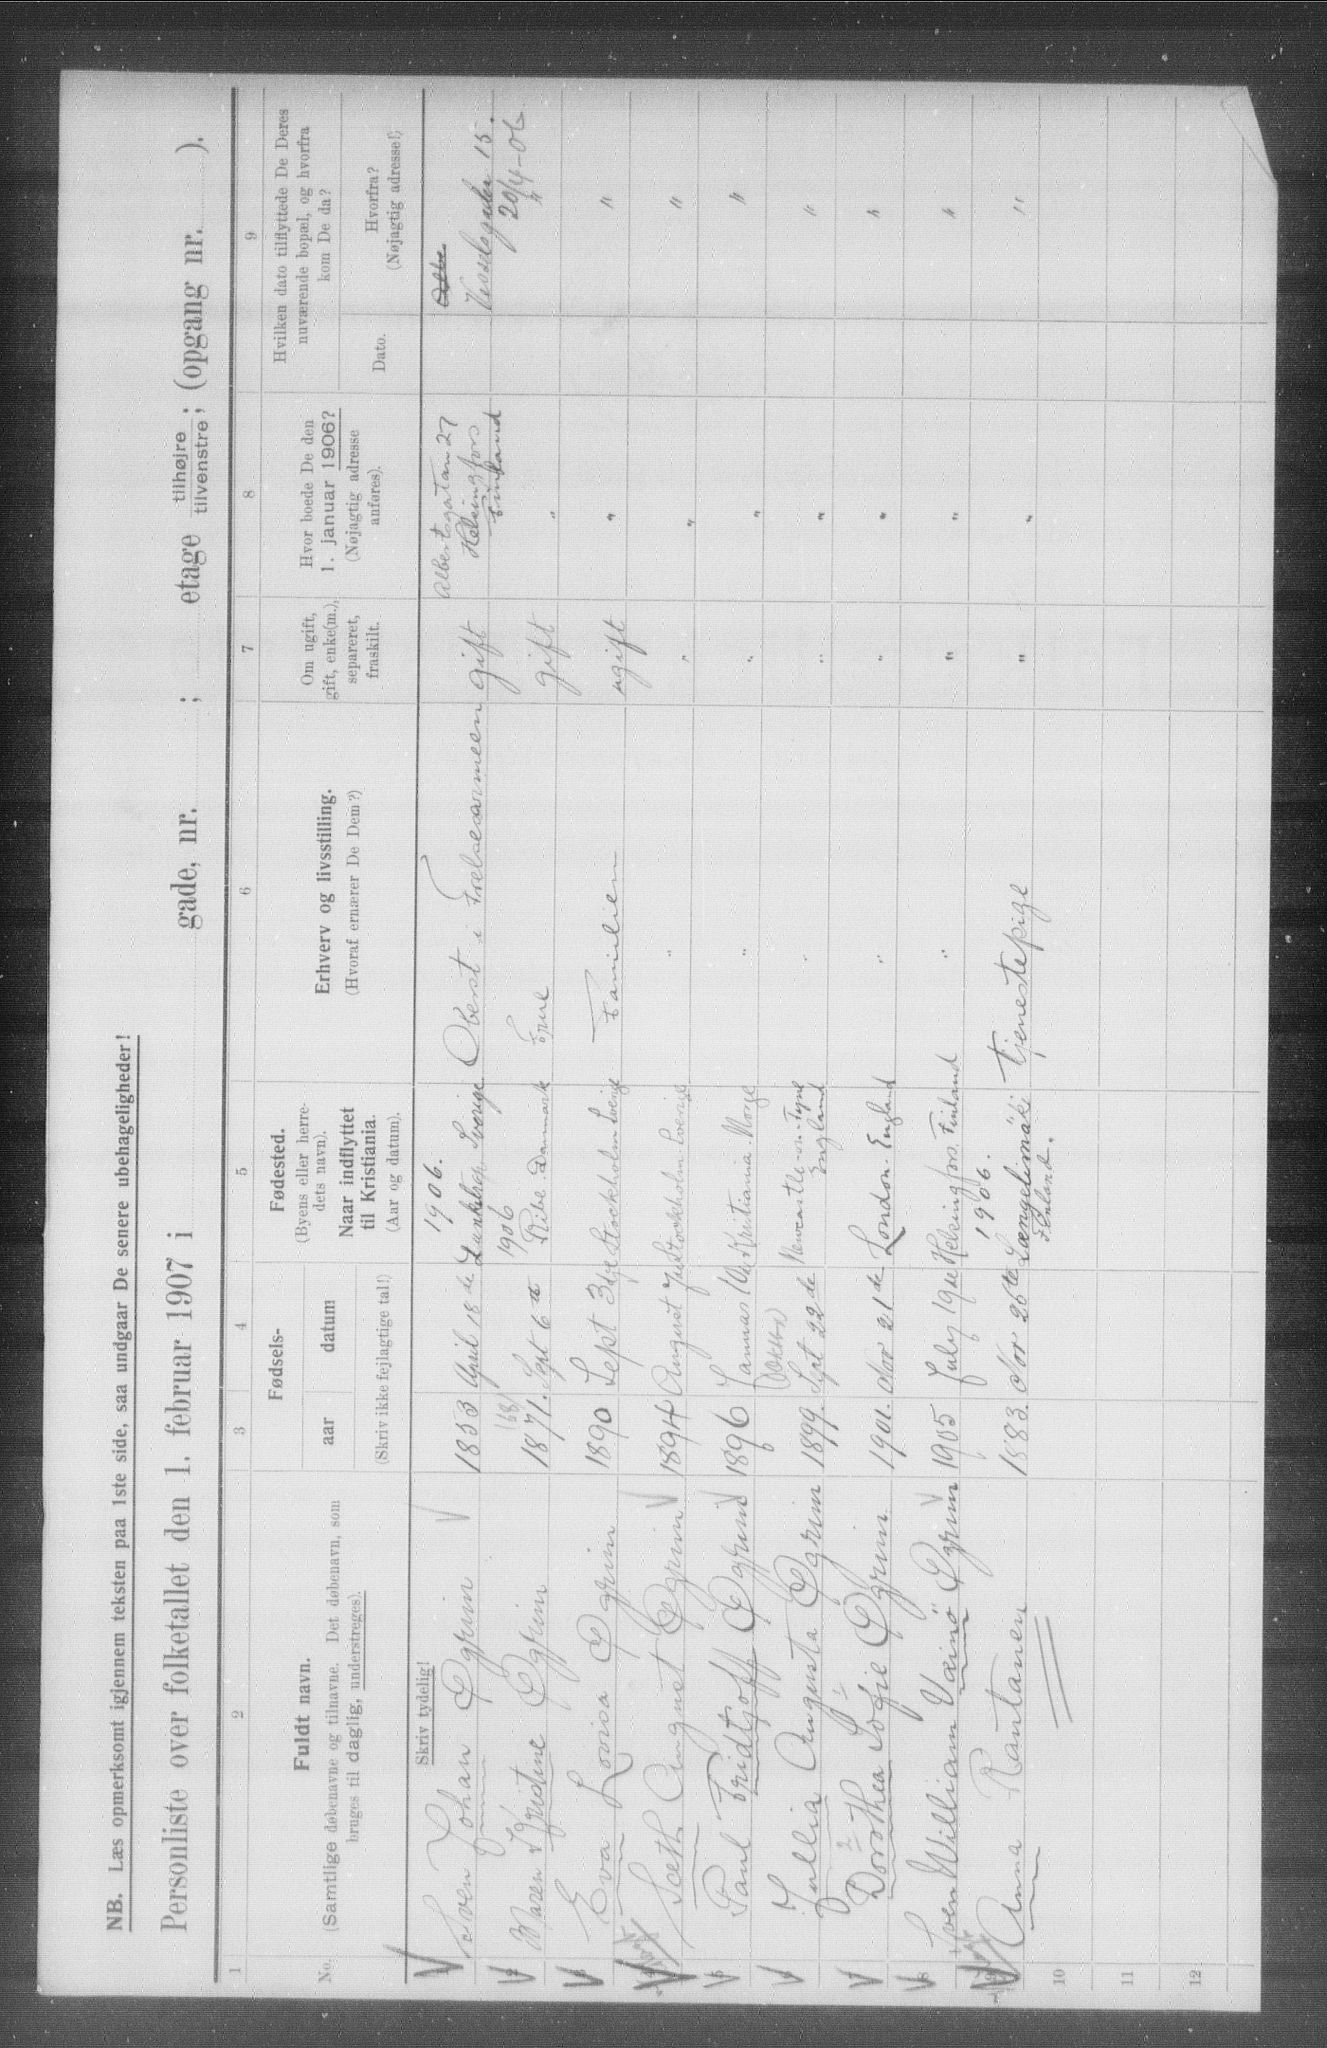 NB. Læs opmerksomt igjennem teksten paa 1ste side, saa undgaar De senere ubehageligheder!
Personliste over folketallet den 1. februar 1907 i gade, nr. ; etage tilhøjre tilvenstre; (opgang nr. ).
1 2 3 4 5 6 7 8 9
No.
Fuldt navn.
(Samtlige døbenavne og tilnavne. Det døbenavn, som
bruges til daglig, understreges).
Fødsels-
aar datum
(Skriv ikke fejlagtige tal!)
Fødested.
(Byens eller herre-
dets navn).
Naar indflyttet
til Kristiania.
(Aar og datum).
Erhverv og livsstilling.
(Hvoraf ernærer De Dem?)
Om ugift,
gift, enke(m.),
separeret,
fraskilt.
Hvor boede De den
1. januar 1906?
(Nøjagtig adresse
anføres).
Hvilken dato tilflyttede De Deres
nuværende bopæl, og hvorfra
kom De da?
Dato.
Hvorfra?
(Nøjagtig adresse!)
Skriv tydelig!
1906. Albertsgatan 27
1 Sven Johan Øgrim 1853 April 18de Sverige Oberst i Frelsearmeen gift Helsingfors
Finland 15.
20/4-06
1906
2 Maren Kristine Øgrim 1871. Sept 6te Ribe Danmark Frue gift " "
3 Eva Lovisa Øgrim 1890 Sept 3dje Stockholm Sverige Familien ugift " "
4 August Øgrim 1894 August Stockholm Sverige " " " "
5 Paul Fridtjoff Øgrim 1896 Kristiania Norge " " " "
6 Jullia Augusta Øgrim 1899. Sept 22de Newcastle-on-Tyne
England " " " "
7 Dorothea Sofie Øgrim 1901. Nov 21de London England " " " "
8 Sven William Vainö Øgrim 1905 July 19de Helsingfors Finland " " " "
1906.
9 Anna Rantanen 1883. Nov 26te Længelimäki
Finland. tjenestepige " " "
10
11
12